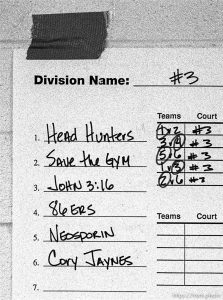 Division Name: #3
Teams Court
1. Head Hunters 1 v 2 #3
2. Save the GYM 3 v 4 #3
3. John 3:16 5 v 6 #3
4. 86ERS 1 v 3 #3
5. Neosporin 2 v 6 #3
6. Cory Jaynes
Teams Court
7.